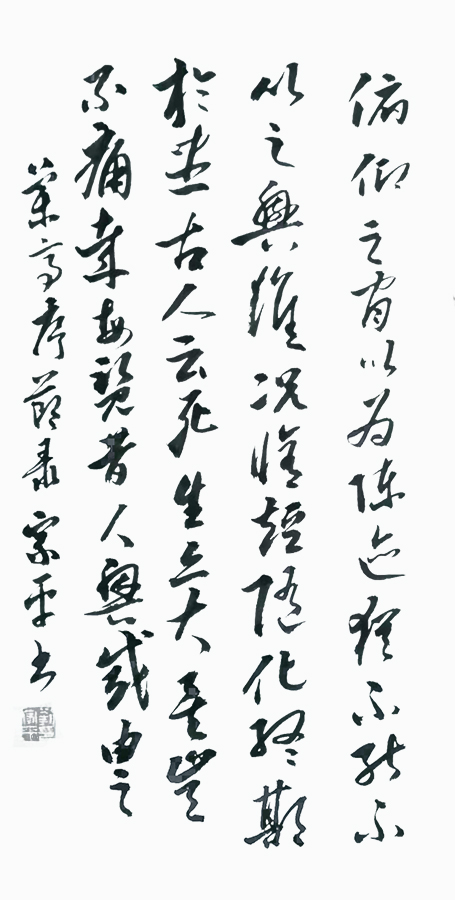 俯仰之間以為陳迹猶不能不
以之興懷況脩短隨化終期
於盡古人云死生亦大矣豈
不痛哉每覽昔人興感由之
蘭亭序節錄 宗平书